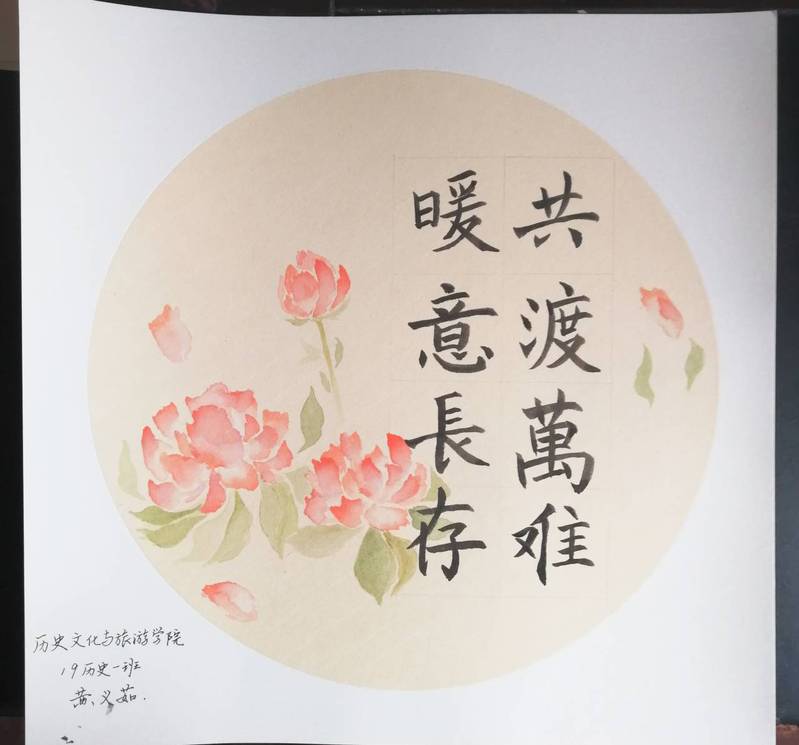 共渡萬难
暖意長存
历史文化与旅游学院
19历史一班
黄义茹.